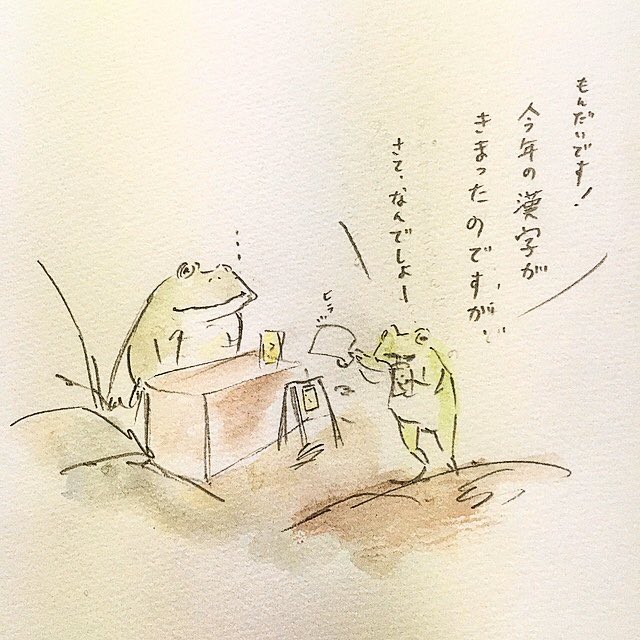 もんだいです!
今年の漢字が
きまったのですが、
さて、なんでしょー
ピラ
…